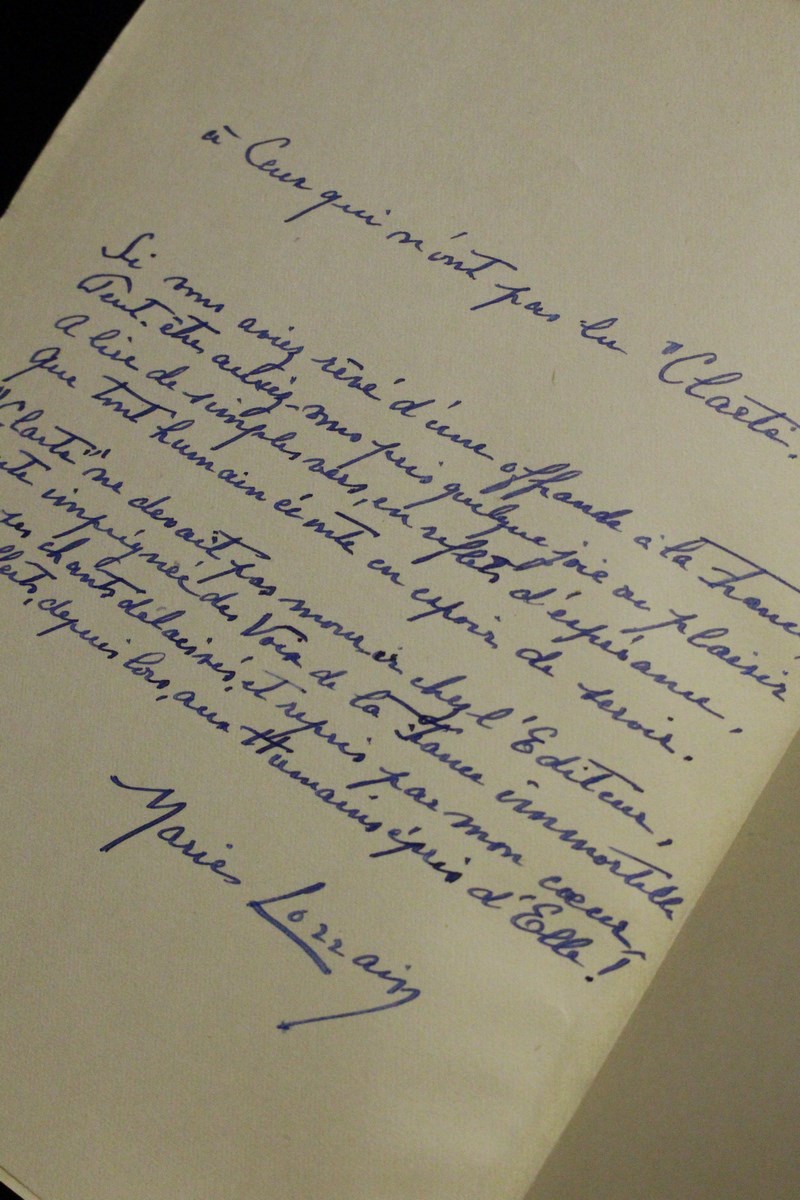 à Ceux qui n'ont pas lu "Clarté".
Si vous aviez rêvé d'une offrande à la France,
Peut-être auriez-vous pris quelque joie ou plaisir
A lire de simples vers, en reflets d'espérance,
Que tout humain en espoir de servir.
"Clarté" ne devait pas mourir chez l'Editeur,
imprégnée des Voix de la France immortelle
ses chants délaissés, et repris par mon cœur,
depuis lors, aux Humains épris d'Elle!
Lorrain